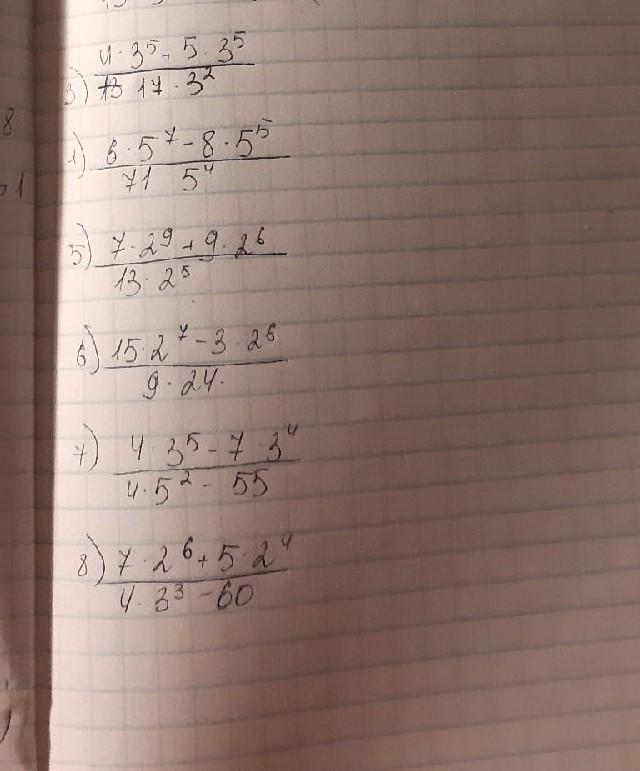 3) 4·3⁵ - 5·3⁵
17·3²
4) 6·5⁷ - 8·5⁵
71 5⁴
5) 7·2⁹ + 9·2⁶
13·2⁵
6) 15·2⁷ - 3·2⁶
9·24.
7) 4·3⁵ - 7·3⁴
4·5² - 55
8) 7·2⁶ + 5·2⁴
4·3³ - 60